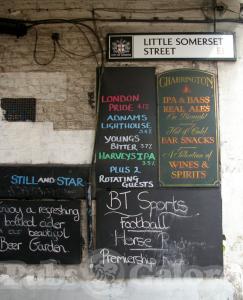 LITTLE SOMERSET
STREET E1
CHARRINGTON
IPA & BASS
REAL ALES
On Draught
Hot & Cold
BAR SNACKS
A Selection of
WINES &
SPIRITS
LONDON
PRIDE 4.1%
ADNAMS
LIGHTHOUSE
3.4%
YOUNGS
BITTER 3.7%
HARVEYS IPA
3.5%
PLUS 2
ROTATING
GUESTS
STILL AND STAR
Enjoy a refreshing
bottled cider
beautiful
Beer Garden
BT Sports
Football
Horse R
Premiership